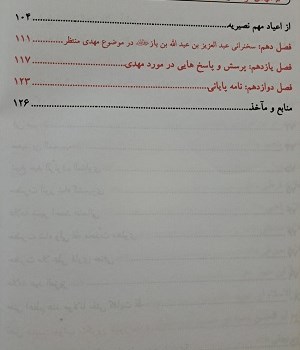 از اعیاد مهم نصیریه ........ ۱۰۴
فصل دهم: سخنرانی عبد العزیز بن عبد الله بن باز در موضوع مهدی منتظر ........ ۱۱۱
فصل یازدهم: پرسش و پاسخ هایی در مورد مهدی ........ ۱۱۷
فصل دوازدهم: نامه پایانی ........ ۱۲۳
منابع و مآخذ ........ ۱۲۶